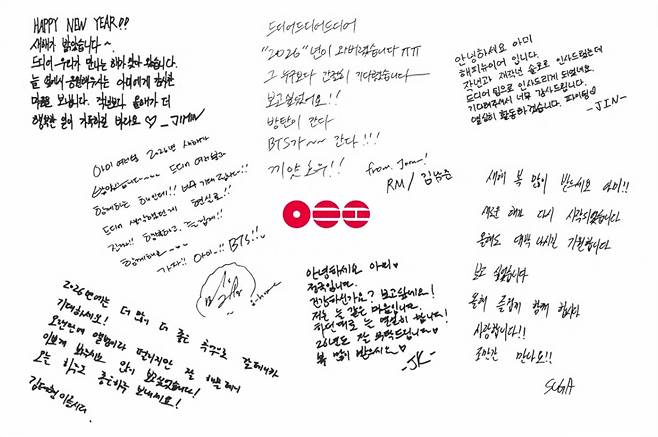 HAPPY NEW YEAR!!
새해가 밝았습니다~
드디어 우리가 만나는 해가 찾아 왔습니다.
늘 옆에서 응원해주시는 아미에게 감사한
마음을 보냅니다. 작년보다 올해가 더
행복한 일이 가득하길 바라요 ♡ -JIMIN
드디어드디어드디어
"2026"년이 와버렸습니다 ㅠㅠ
그 누구보다 간절히 기다렸습니다
보고싶었어요!!
방탄이 간다
BTS가~~ 간다!!!
끼얏호우!!
from. Joon!
RM/김남준
안녕하세요 아미
해피뉴이어 입니다.
작년과 재작년 솔로로 인사드렸는데
드디어 팀으로 인사드리게 되었네요
기다려주셔서 너무 감사드립니다.
열심히 활동하겠습니다. 파이팅♡
-JIN-
아미 여러분 2026년 새해가
밝았습니다~~~ 드디어 여러분과
함께하는 해인데!! 너무 기대
드디어 생각했던게 현실로!!
진짜!! 행복하고 즐겁게!!
함께해요~
가자!! 아미!! BTS!!
새해 복 많이 받으세요 아미!!
새로운 해가 다시 시작되었습니다
올해도 대박 나시길 기원합니다.
보고 싶었습니다
올해 즐겁게 함께 합시다
사랑합니다!!
조만간 만나요!!
SUGA
2026년에는 더 많이 더 좋은 추억으로
기대하세요!
오랜만에 앨범이라 떨리지만 잘
이쁘게 봐주시고 많이 보고싶었습니다!
오늘 하루도 좋은하루 보내세요!
김태형이었습니다.
안녕하세요 아미♡
정국입니다.
건강하신가요? 보고싶네요!
저는 늘 같은 마음입니다
하던대로 늘 열심히 합니다!
26년도 잘 부탁드립니다♡
복 많이 받으시오♡
-JK-